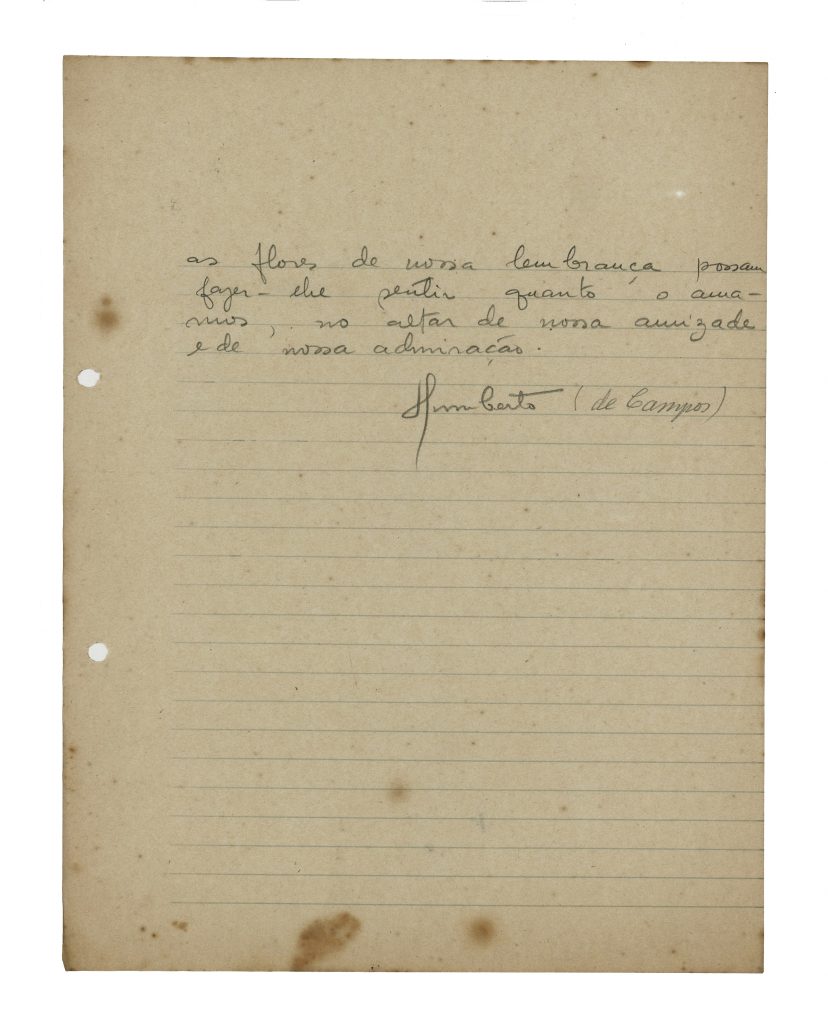 as flores de nossa lembrança possam
fazer-lhe sentir quanto o ama-
mos, no altar de nossa amizade
e de nossa admiração.
Humberto (de Campos)